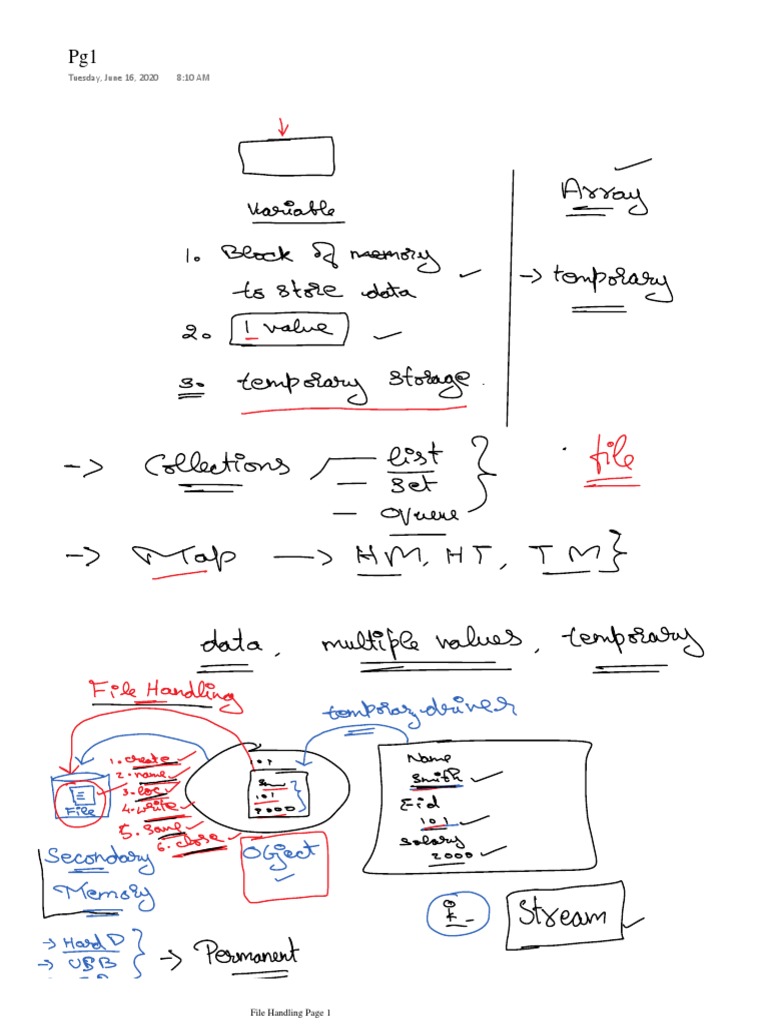 Pg1
Tuesday, June 16, 2020 8:10 AM
Variable
1. Block of memory
to store data
2. 1 value
3. temporary storage.
Array
-> temporary
-> Collections — list
— Set
— Queue
file
-> Map -> HM, HT, TM
data, multiple values, temporary
File Handling
temporary driver
1. create
2. name
3. loc
4. write
5. save
6. close
File
101
Object
Name
Smith
Eid
101
Salary
2000
Secondary
Memory
-> Hard D
-> USB
-> Permanent
Stream
File Handling Page 1